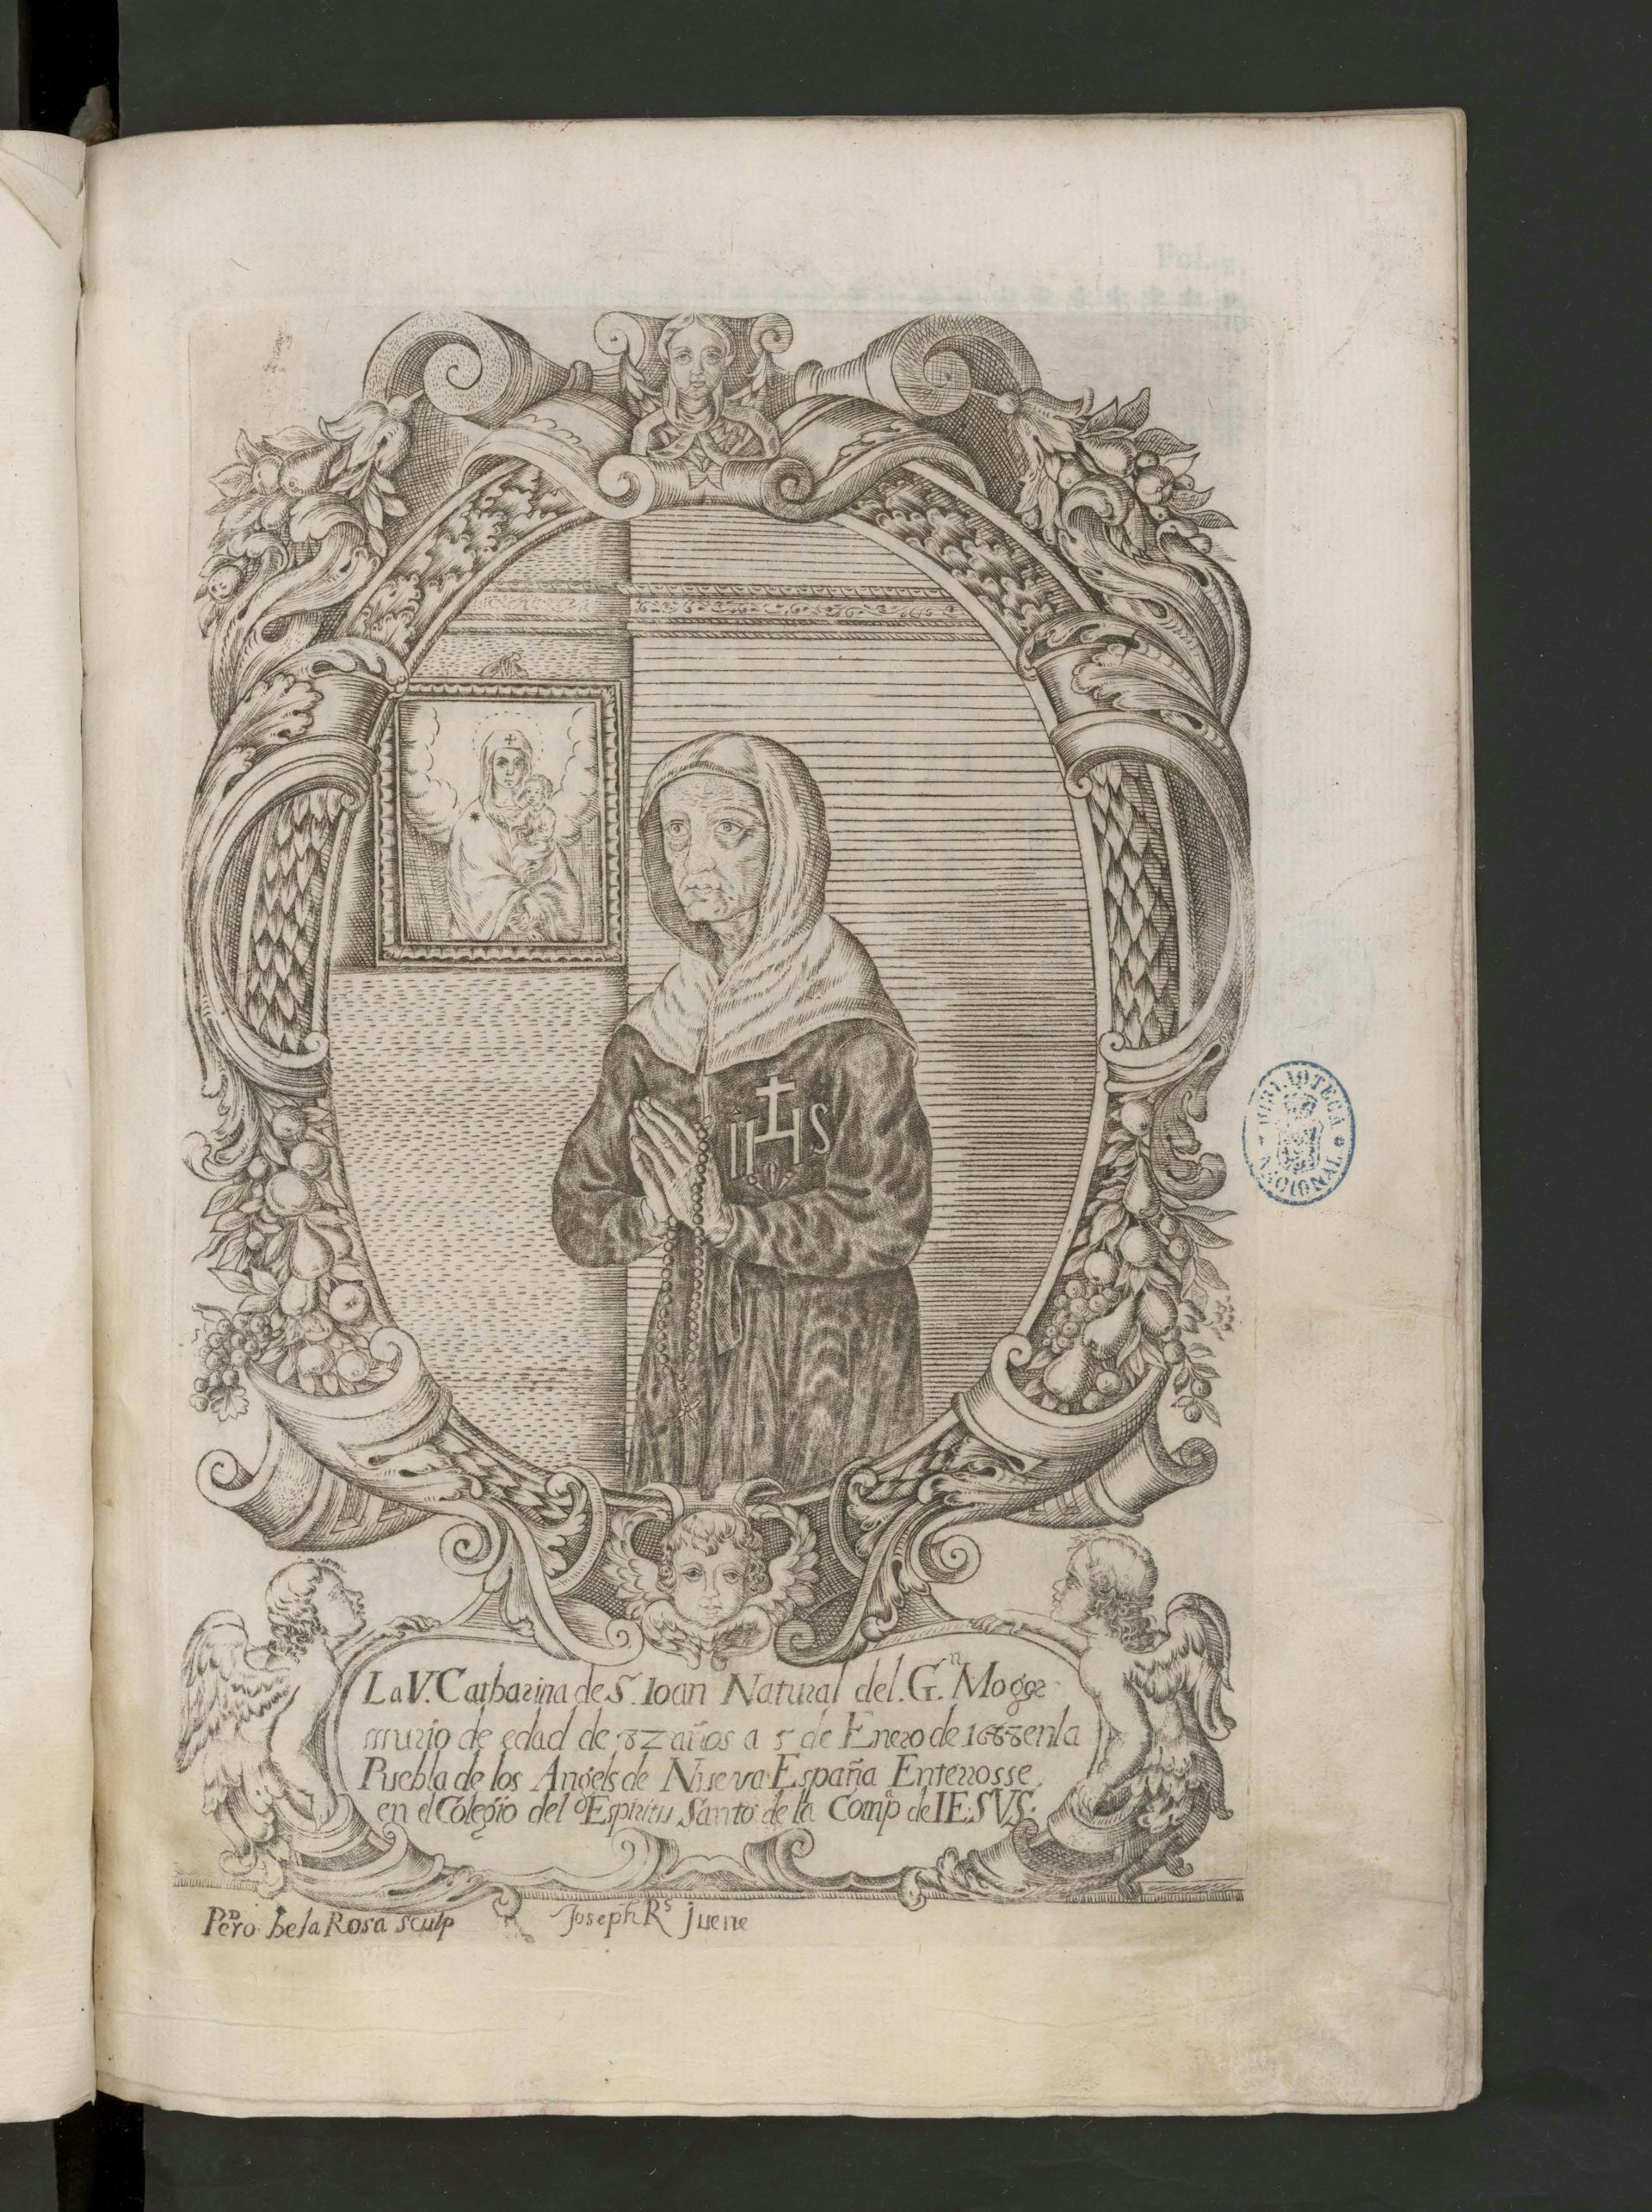 IHS
La V. Catharina de S. Ioan Natural del. G.n Mogor
murio de edad de 82 años a 5 de Enero de 1688 en la
Puebla de los Angels de Nueva España Enterrosse
en el Colegio del Espiritu Santo de la Comp.a de IESVS.
PeDro De la Rosa sculp
Joseph Rs juene
BIBLIOTECA NACIONAL